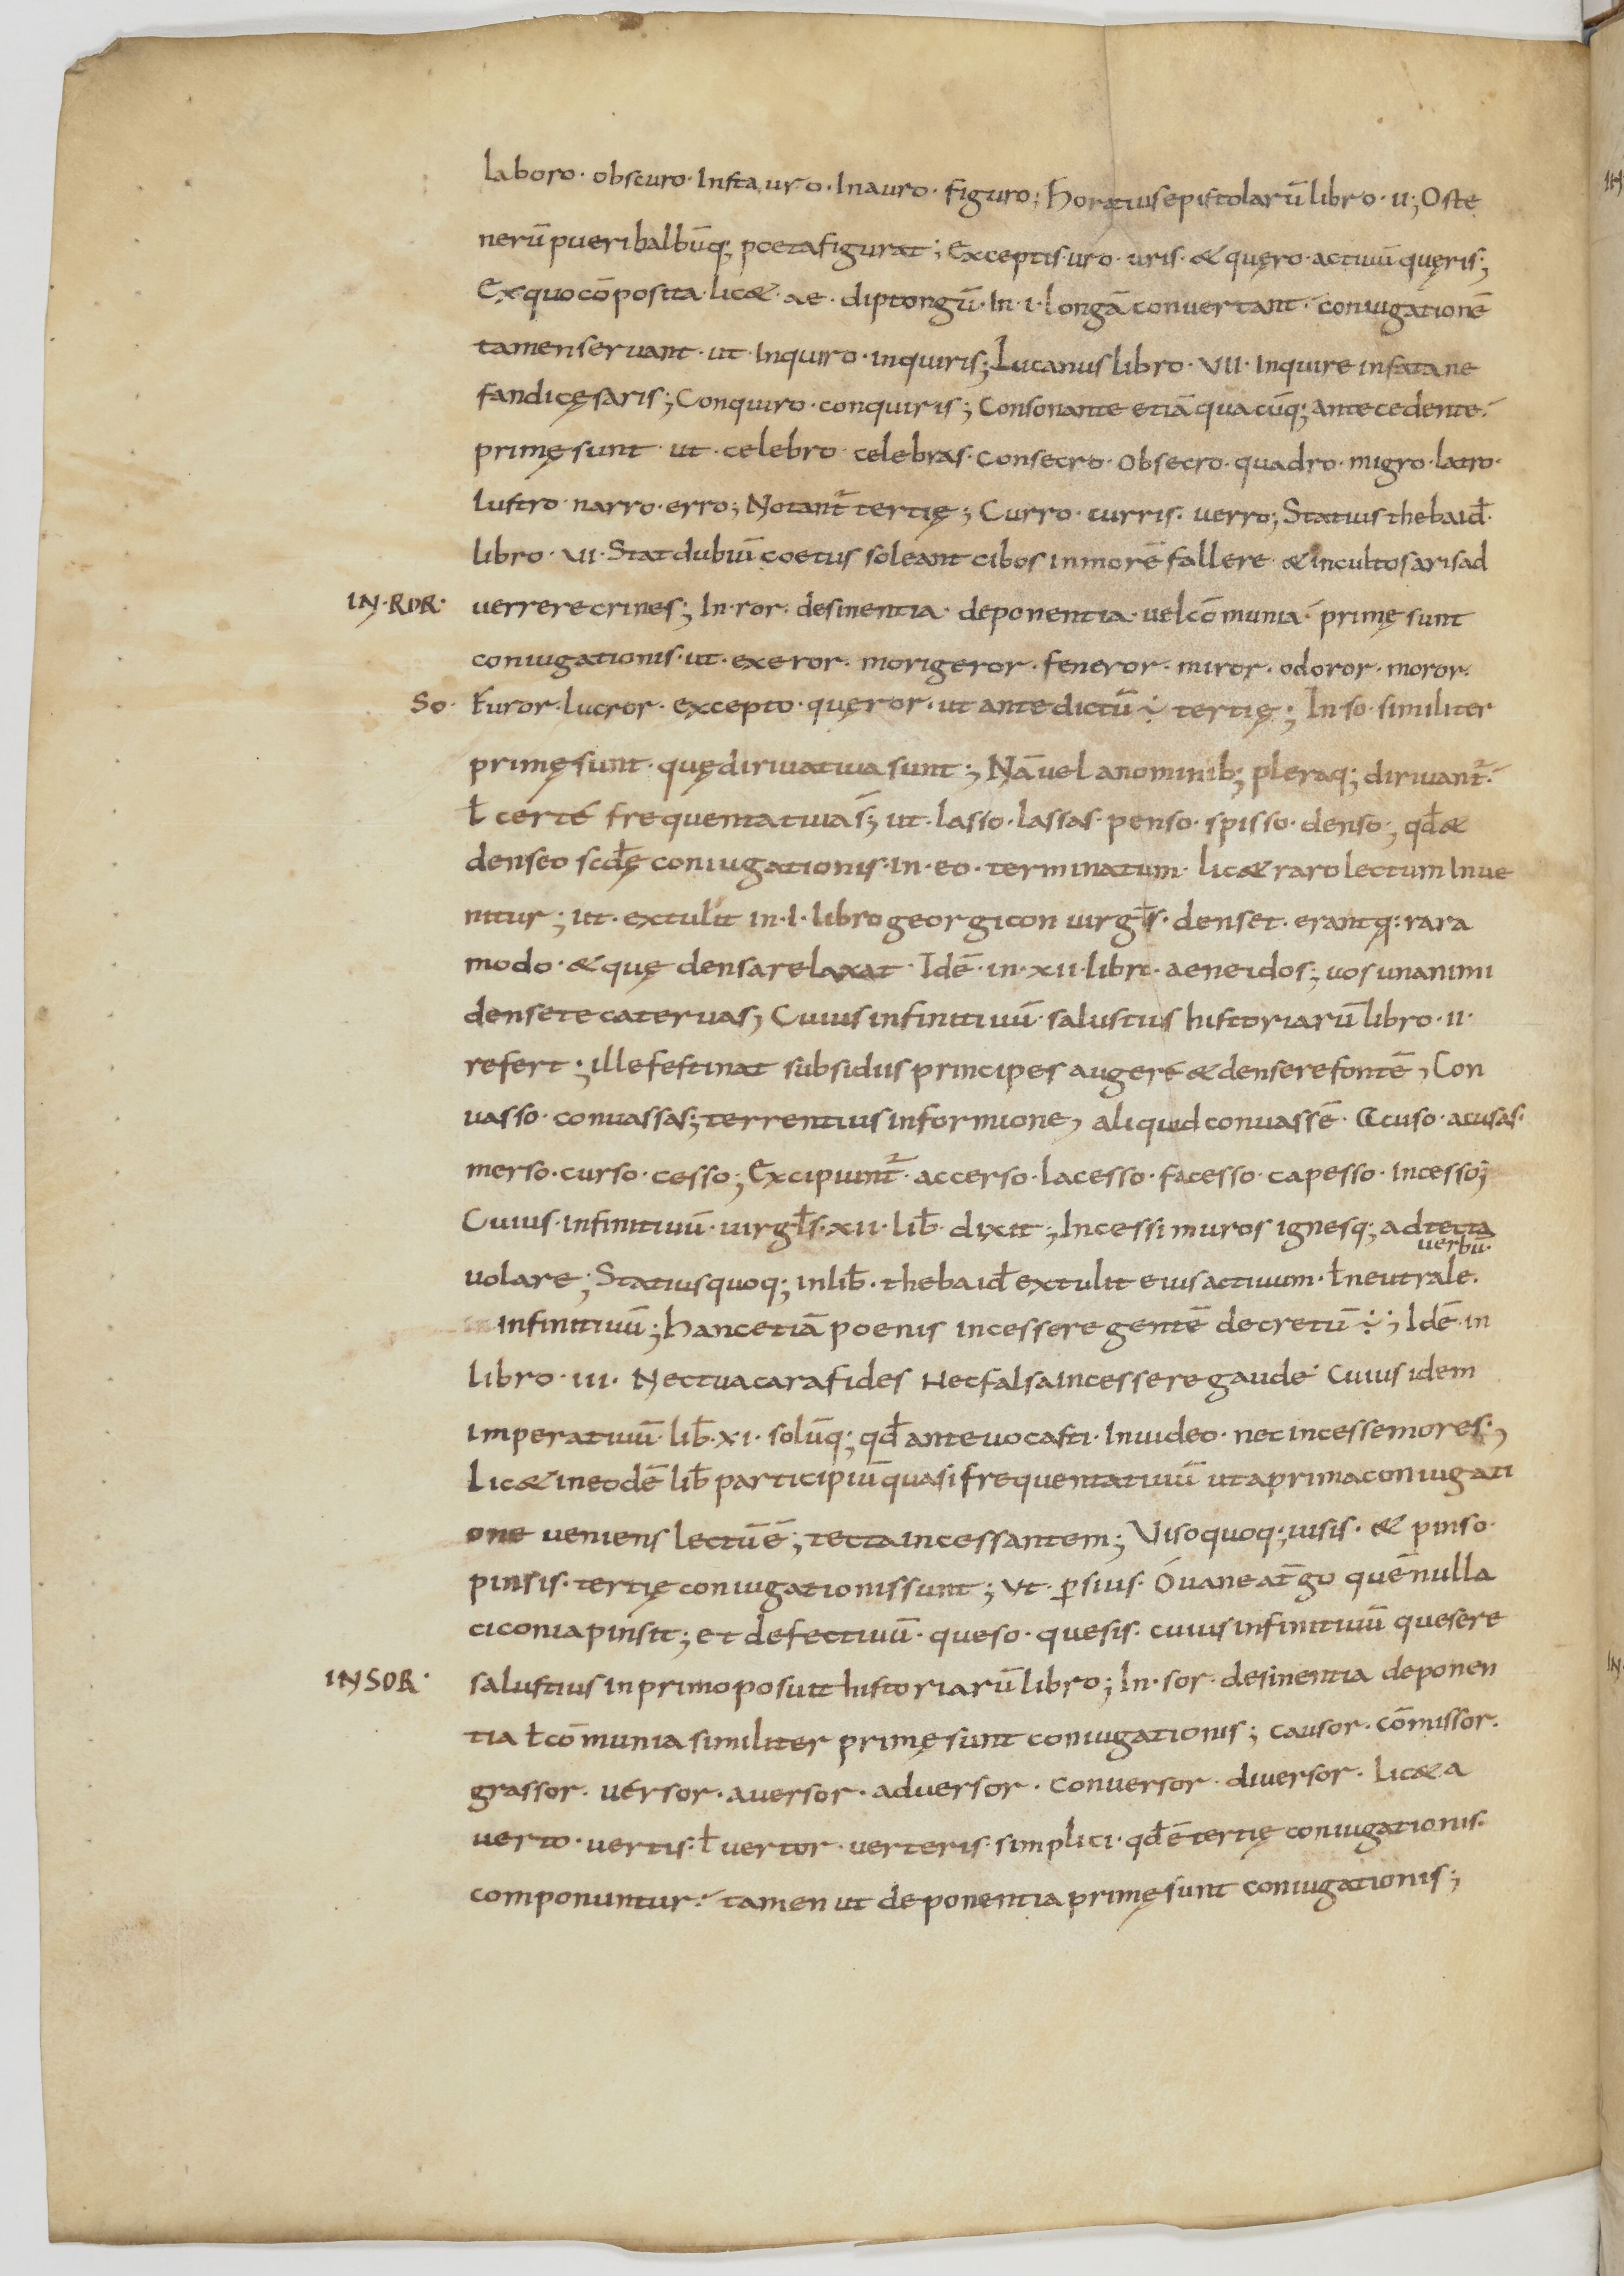 laboro · obscuro · Instauro · Inauro · figuro ; Horatius epistolarū libro · ii ; Os te
nerū pueri balbūq; poeta figurat ; Exceptis · uro · uris · & quęro · actiuū quęris ;
Ex quo cōposita · lic& · ae · diptongū · In · i · longā conuertant · coniugationē
tamen seruant · ut · Inquiro · inquiris ; Lucanus libro · VII · Inquire in fata ne
fandi cęsaris ; Conquiro · conquiris ; Consonante etiā quacūq; antecedente ·
primę sunt · ut · celebro · celebras · Consecro · Obsecro · quadro · migro · latro ·
lustro · narro · erro ; Notant̃ tertię ; Curro · curris · uerro ; Statius thebaid̄ ·
libro · VII · Stat dubiū coetus soleant cibos in morē fallere · & incultos aris ad
IN · ROR · uerrere crines ; In · ror · desinentia · deponentia · uel cōmunia · primę sunt
coniugationis · ut · exeror · morigeror · feneror · miror · odoror · moror ·
So · Furor · lucror · excepto · quęror · ut ante dictū ÷ tertię ; In so · similiter
primę sunt · quę diriuatiua sunt ; Nā uel a nominib; pleraq; diriuant̃ ·
ł certé frequentatiua s̄ ; ut · lasso · lassas · penso · spisso · denso ; qđ &
denseo scđę coniugationis · in · eo · terminatum · lic& raro lectum Inue
nitur ; ut · extulit in · I · libro georgicon uirgłs · denset · erantq : rara
modo · & quę densa relaxat · Idē · in · xii · libr · aeneidos ; uos unanimi
densete cateruas ; Cuius infinitiuū · salustius historiarū libro · ii ·
refert ; ille festinat subsidiis principes augere & densere fontē , Con
uasso · conuassas ; terrentius in formione , aliquid conuassē · Accuso · acusas ·
merso · curso · cesso ; Excipiunt̃ · accerso · lacesso · facesso · capesso · Incesso ;
Cuius · infinitiuū · uirgłs · xii · lib̄ · dixit ; Incessi muros ignesq; ad tecta
uerbū ·
uolare ; Statius quoq; in lib̄ · thebaid̄ extulit eius actiuum · ł neutrale ·
infinitiuū ; hanc etiā poenis incessere gentē decretū ÷ ; Idē · in
libro · iii · Nec tua cara fides Nec falsa Incessere gaude · Cuius idem
imperatiuū · lib̄ · xi · solūq; qđ ante uocasti · Inuideo · nec incesse mores ;
Lic& in eodē lib̄ participiū quasi frequentatiuū ut a prima coniugati
one ueniens lectū ē ; tecta incessantem ; Viso quoq; uisis · & pinso ·
pinsis · tertię coniugationis sunt ; Vt · ꝑsius · O iane a t̄go quē nulla
ciconia pinsit ; et defectiuū · queso · quesis · cuius infinitiuū quesere
IN SOR · salustius in primo posuit historiarū libro ; In · sor · desinentia deponen
tia ł cōmunia similiter primę sunt coniugationis ; causor · cōmissor ·
grassor · uérsor · auersor · aduersor · conuersor · diuersor · lic& a
uerto · uertis · ł uertor · uerteris · simplici · qđ ē tertię coniugationis ·
componuntur · tamen ut deponentia primę sunt coniugationis ;